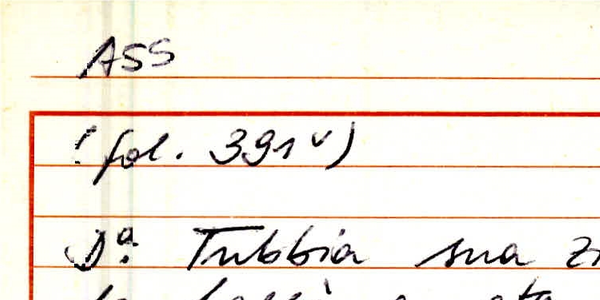 ASS
(fol. 391v)
Dª. Tubbia sua